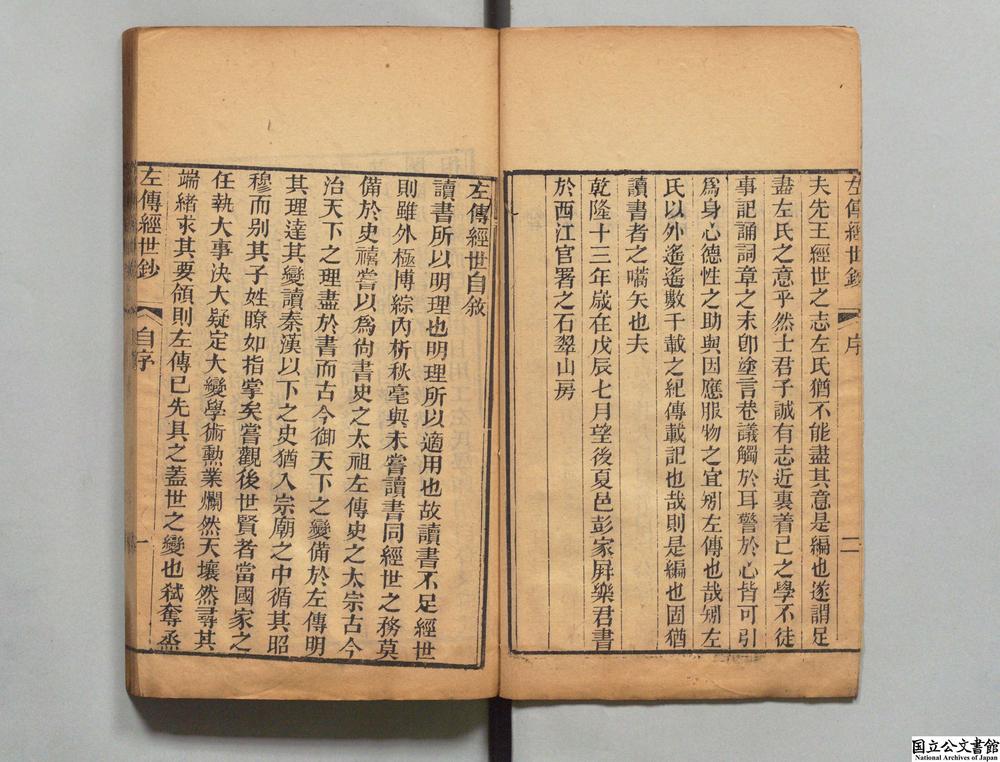 左傳經世鈔 序 二
夫先王經世之志左氏猶不能盡其意是編也遂謂足
盡左氏之意乎然士君子誠有志近裏着己之學不徒
事記誦詞章之末卽塗言巷議觸於耳警於心皆可引
爲身心德性之助與因應服物之宜矧左傳也哉矧左
氏以外遙遙數千載之紀傳載記也哉則是編也固猶
讀書者之嚆矢也夫
乾隆十三年歲在戊辰七月望後夏邑彭家屛樂君書
於西江官署之石翠山房
左傳經世自敘
讀書所以明理也明理所以適用也故讀書不足經世
則雖外極博綜內析秋毫與未嘗讀書同經世之務莫
備於史禧嘗以爲尙書史之太祖左傳史之太宗古今
治天下之理盡於書而古今御天下之變備於左傳明
其理達其變讀秦漢以下之史猶入宗廟之中循其昭
穆而别其子姓瞭如指掌矣嘗觀後世賢者當國家之
任執大事決大疑定大變學術勳業爛然天壤然尋其
端緒求其要領則左傳已先具之蓋世之變也弒奪烝
左傳經世鈔 自序 一
国立公文書館
National Archives of Japan